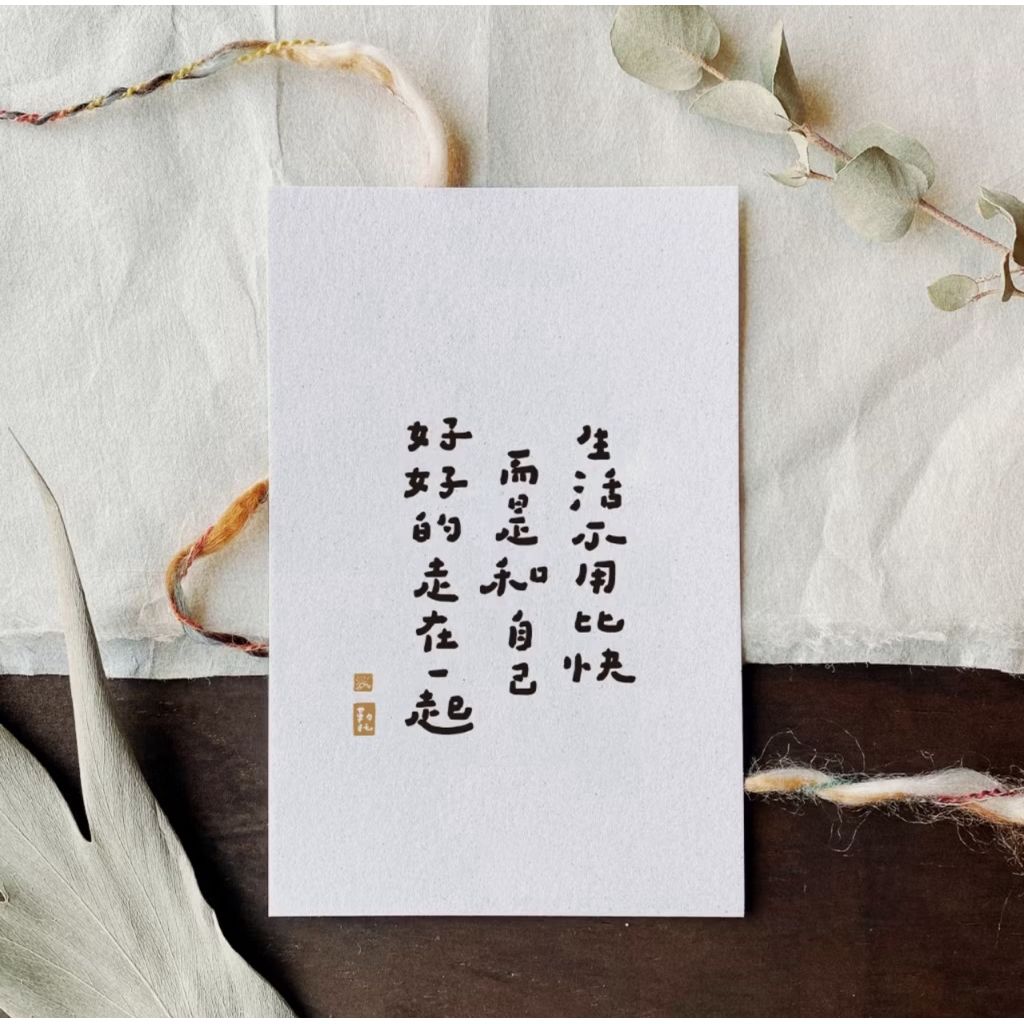 生活不用比快
而是和自己
好好的走在一起